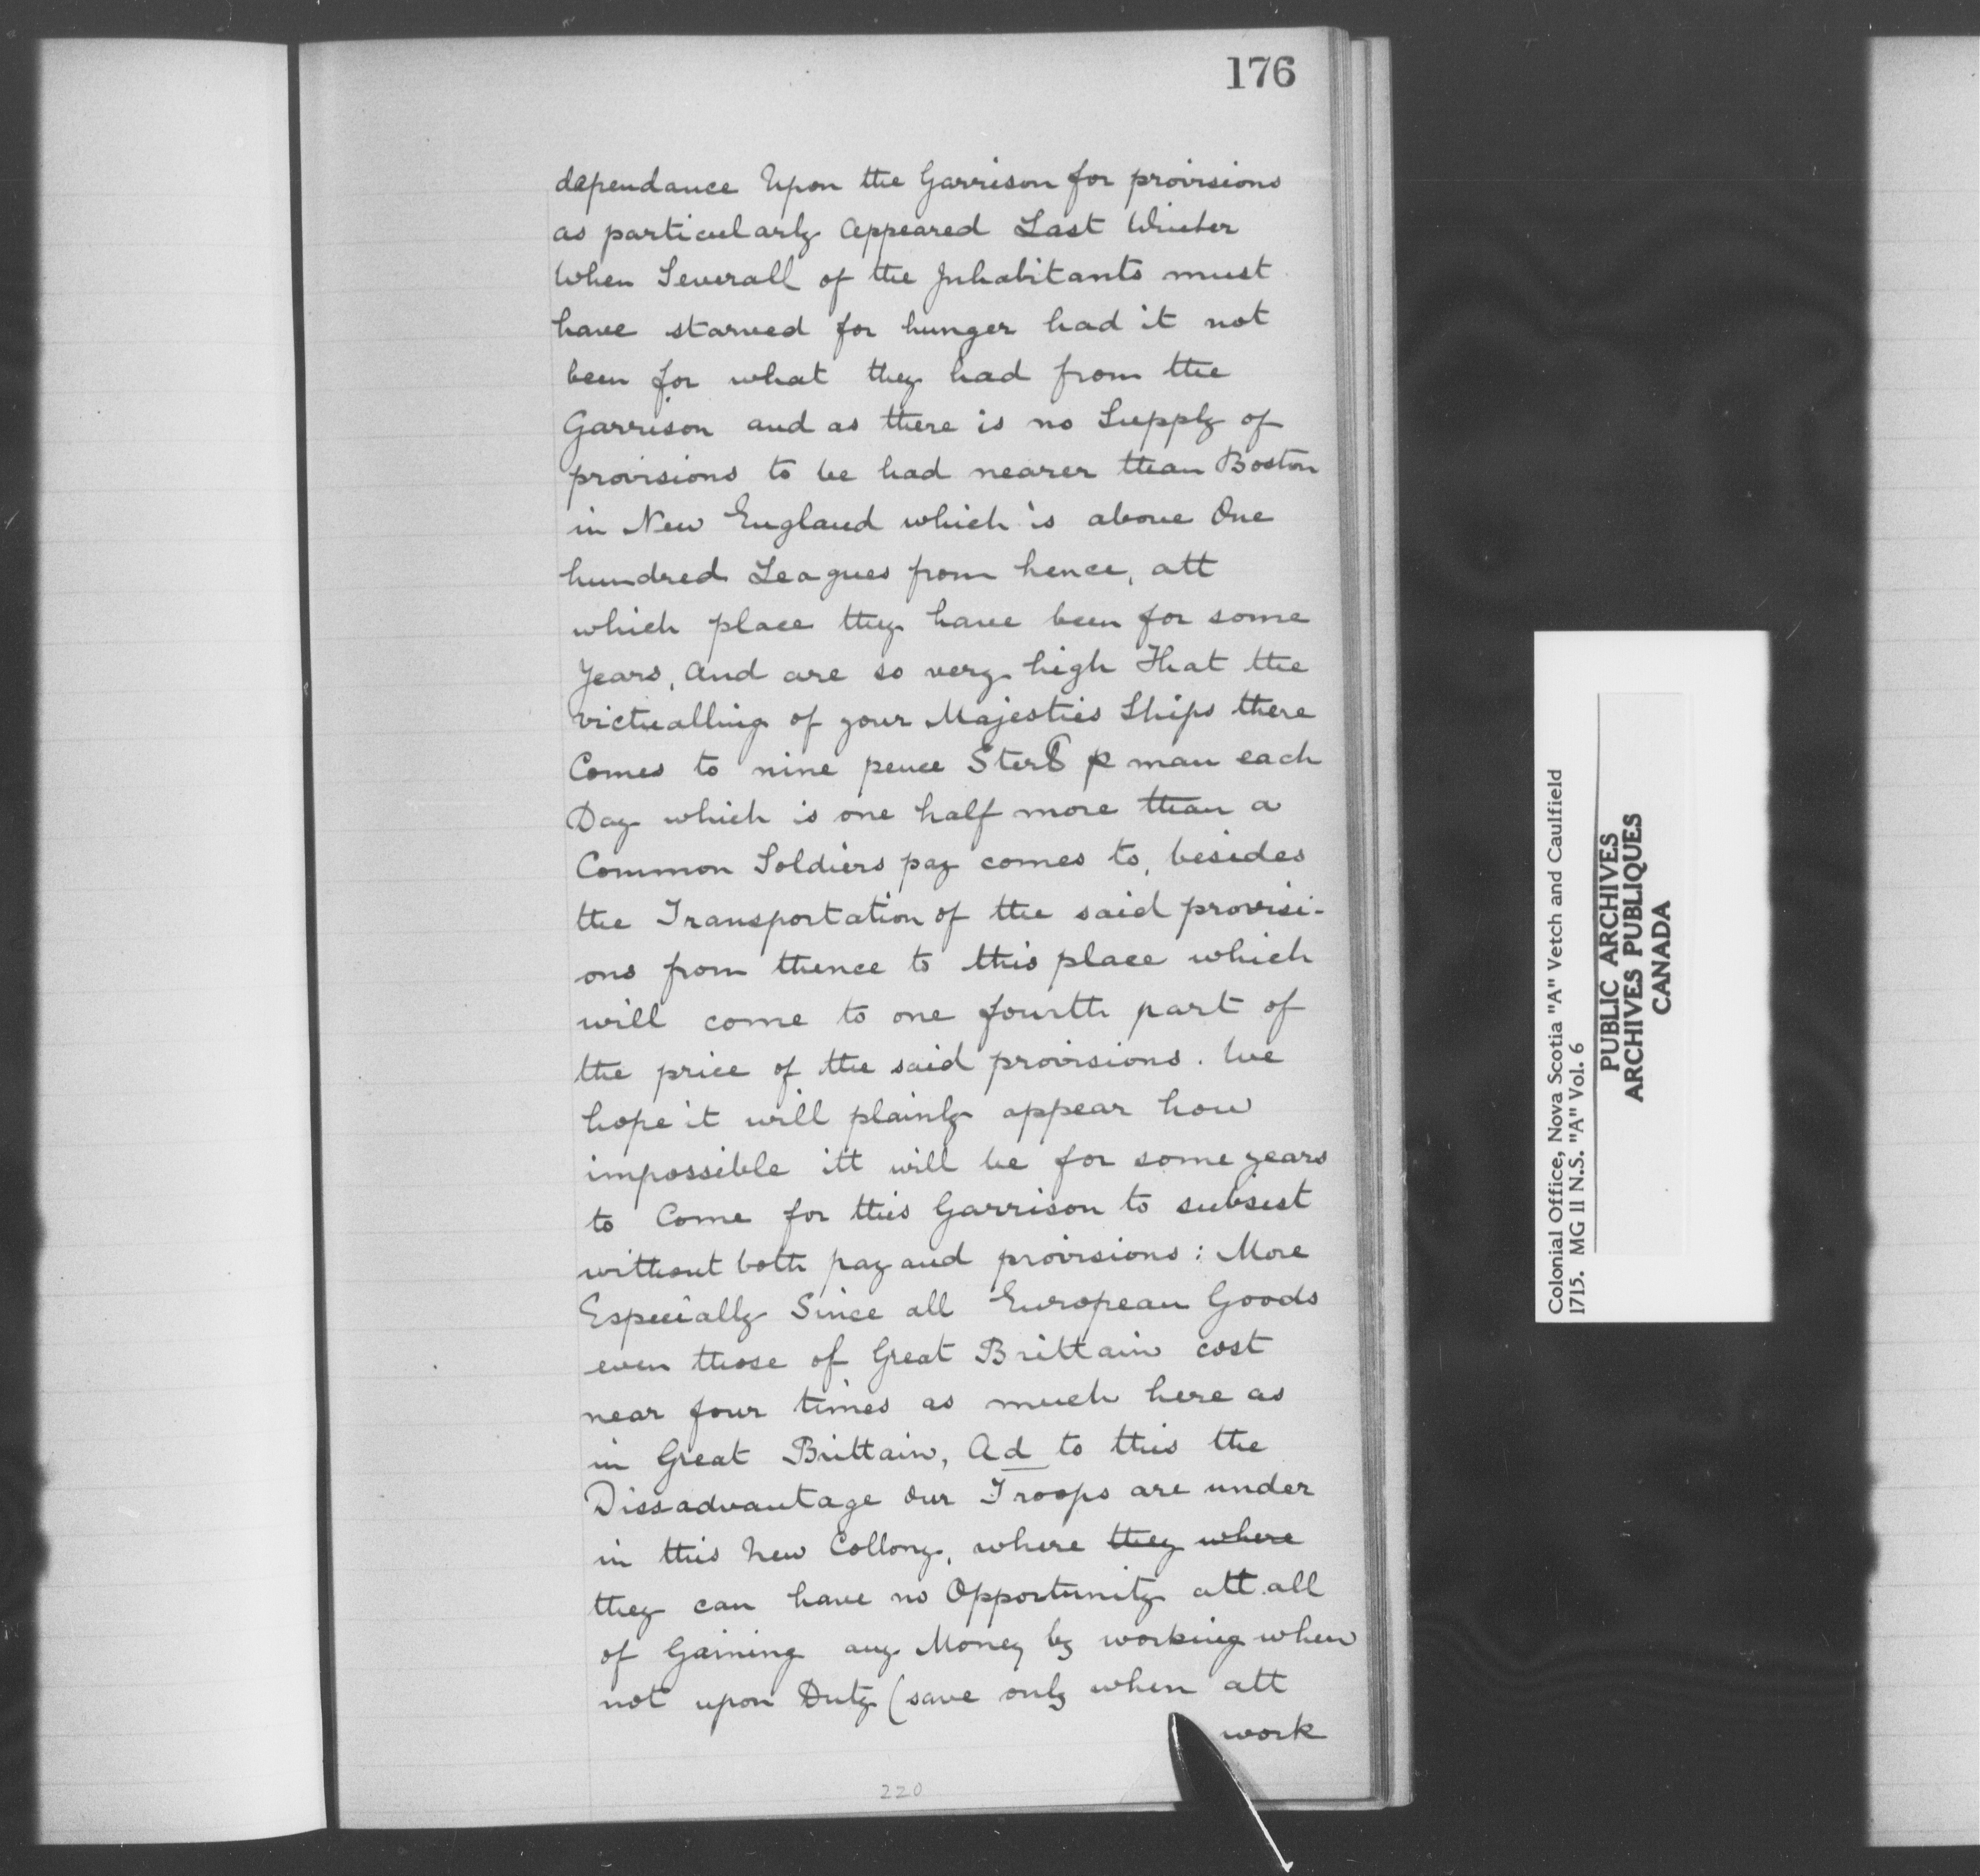 176
dependance Upon the Garrison for provisions
as particularly Appeared Last Winter
When Severall of the Inhabitants must
have starved for hunger had it not
been for what they had from the
Garrison and as there is no Supply of
provisions to be had nearer than Boston
in New England which is above One
hundred Leagues from hence, att
which place they have been for some
Years, And are so very high That the
victualling of your Majesties Ships there
Comes to nine pence Sterl p man each
Day which is one half more than a
Common Soldiers pay comes to, besides
the Transportation of the said provisi-
ons from thence to this place which
will come to one fourth part of
the price of the said provisions. We
hope it will plainly appear how
impossible itt will be for some years
to Come for this Garrison to subsist
without both pay and provisions: More
Especially Since all European Goods
even those of Great Brittain cost
near four times as much here as
in Great Brittain, Ad to this the
Dissadvantage Our Troops are under
in this New Collony, where they where
they can have no Opportunity att all
of Gaining any Money by working when
not upon Duty (save only when att
work
220
Colonial Office, Nova Scotia "A" Vetch and Caulfield
1715. MG 11 N.S. "A" Vol. 6
PUBLIC ARCHIVES
ARCHIVES PUBLIQUES
CANADA